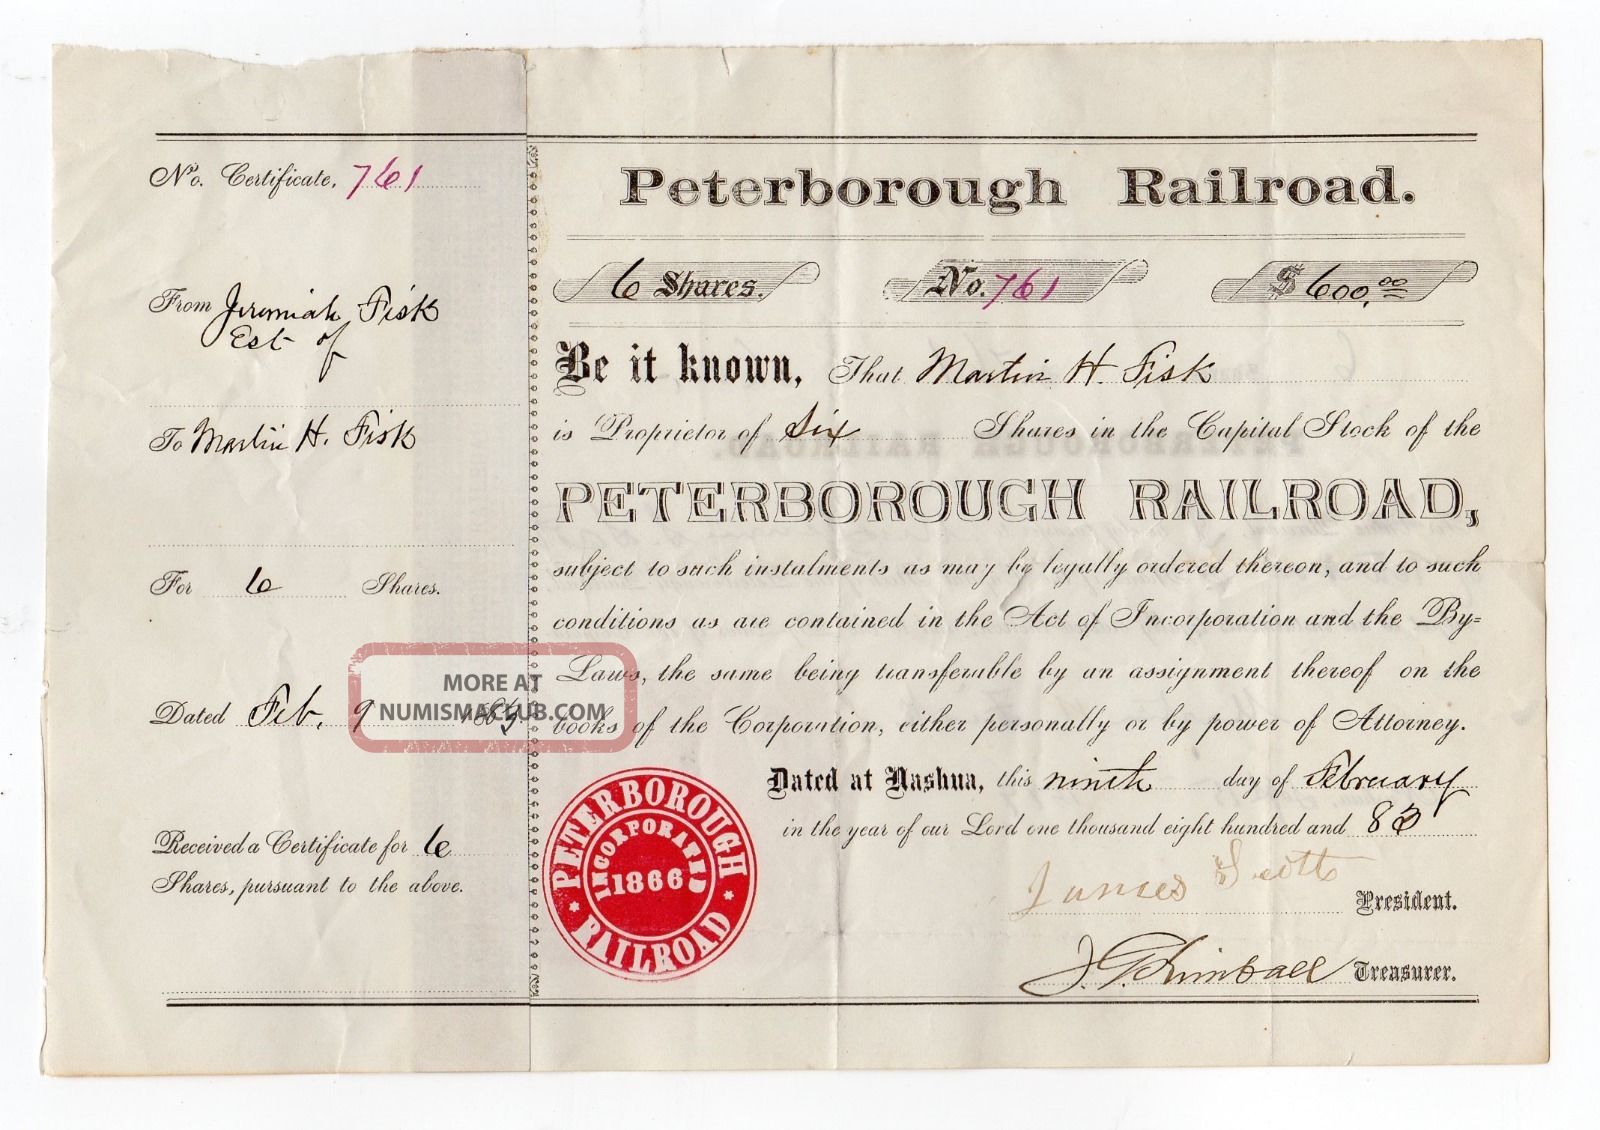 No. Certificate, 761
From Jeremiah Fisk
Est of
To Martin H. Fisk
For 6 Shares.
Dated Feb. 9
Received a Certificate for 6
Shares, pursuant to the above.
Peterborough Railroad.
6 Shares. No. 761 $600.00
Be it known, That Martin H. Fisk
is Proprietor of Six Shares in the Capital Stock of the
PETERBOROUGH RAILROAD,
subject to such instalments as may be legally ordered thereon, and to such
conditions as are contained in the Act of Incorporation and the By-
Laws, the same being transferable by an assignment thereof on the
books of the Corporation, either personally or by power of Attorney.
Dated at Nashua, this ninth day of February
in the year of our Lord one thousand eight hundred and 83
James Scott President.
J. G. Kimball Treasurer.
PETERBOROUGH RAILROAD
INCORPORATED
1866
MORE AT
NUMISMACLUB.COM